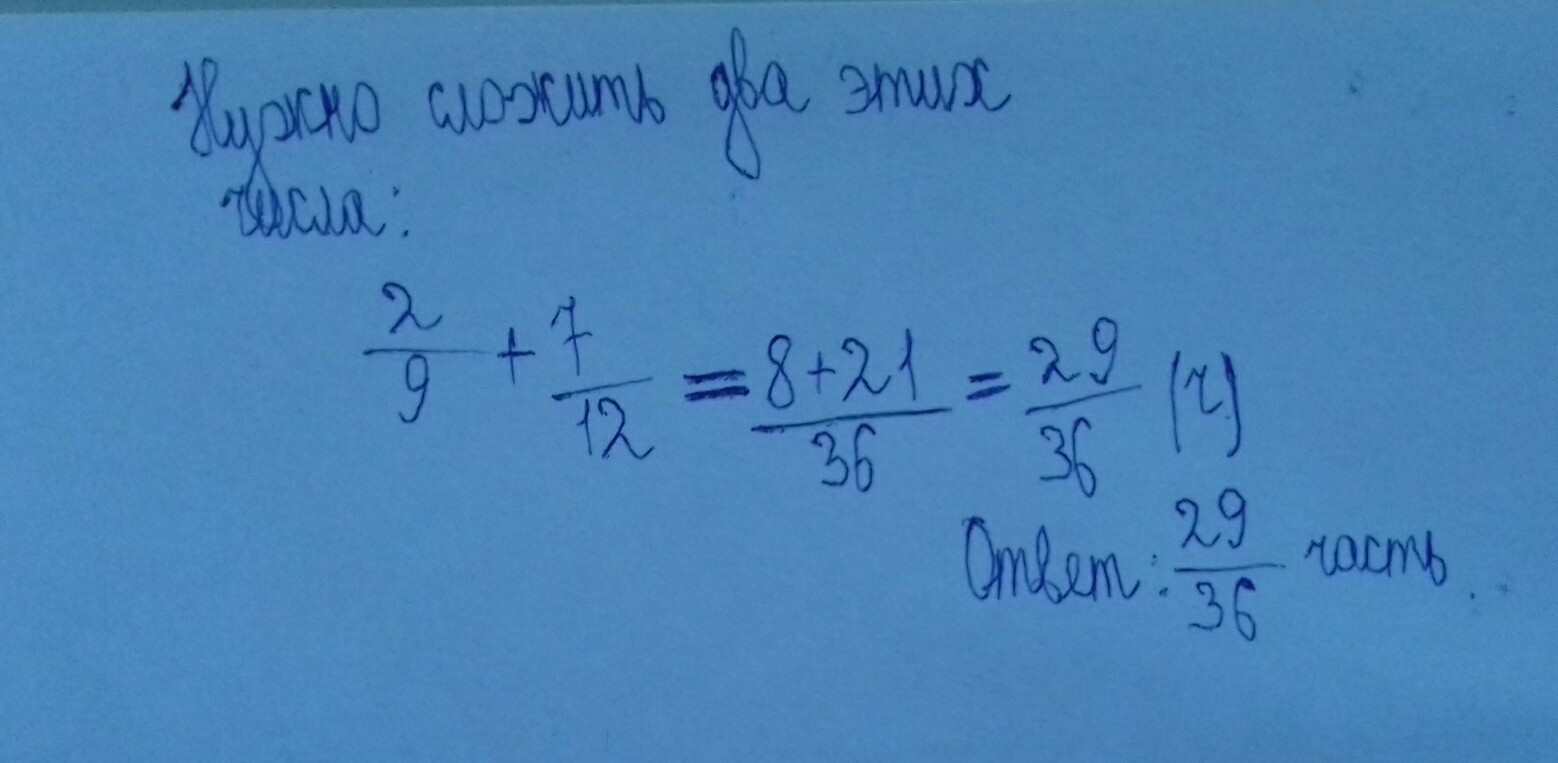 Нужно сложить два этих
числа:
2/9 + 7/12 = 8+21/36 = 29/36 (ч)
Ответ: 29/36 часть.